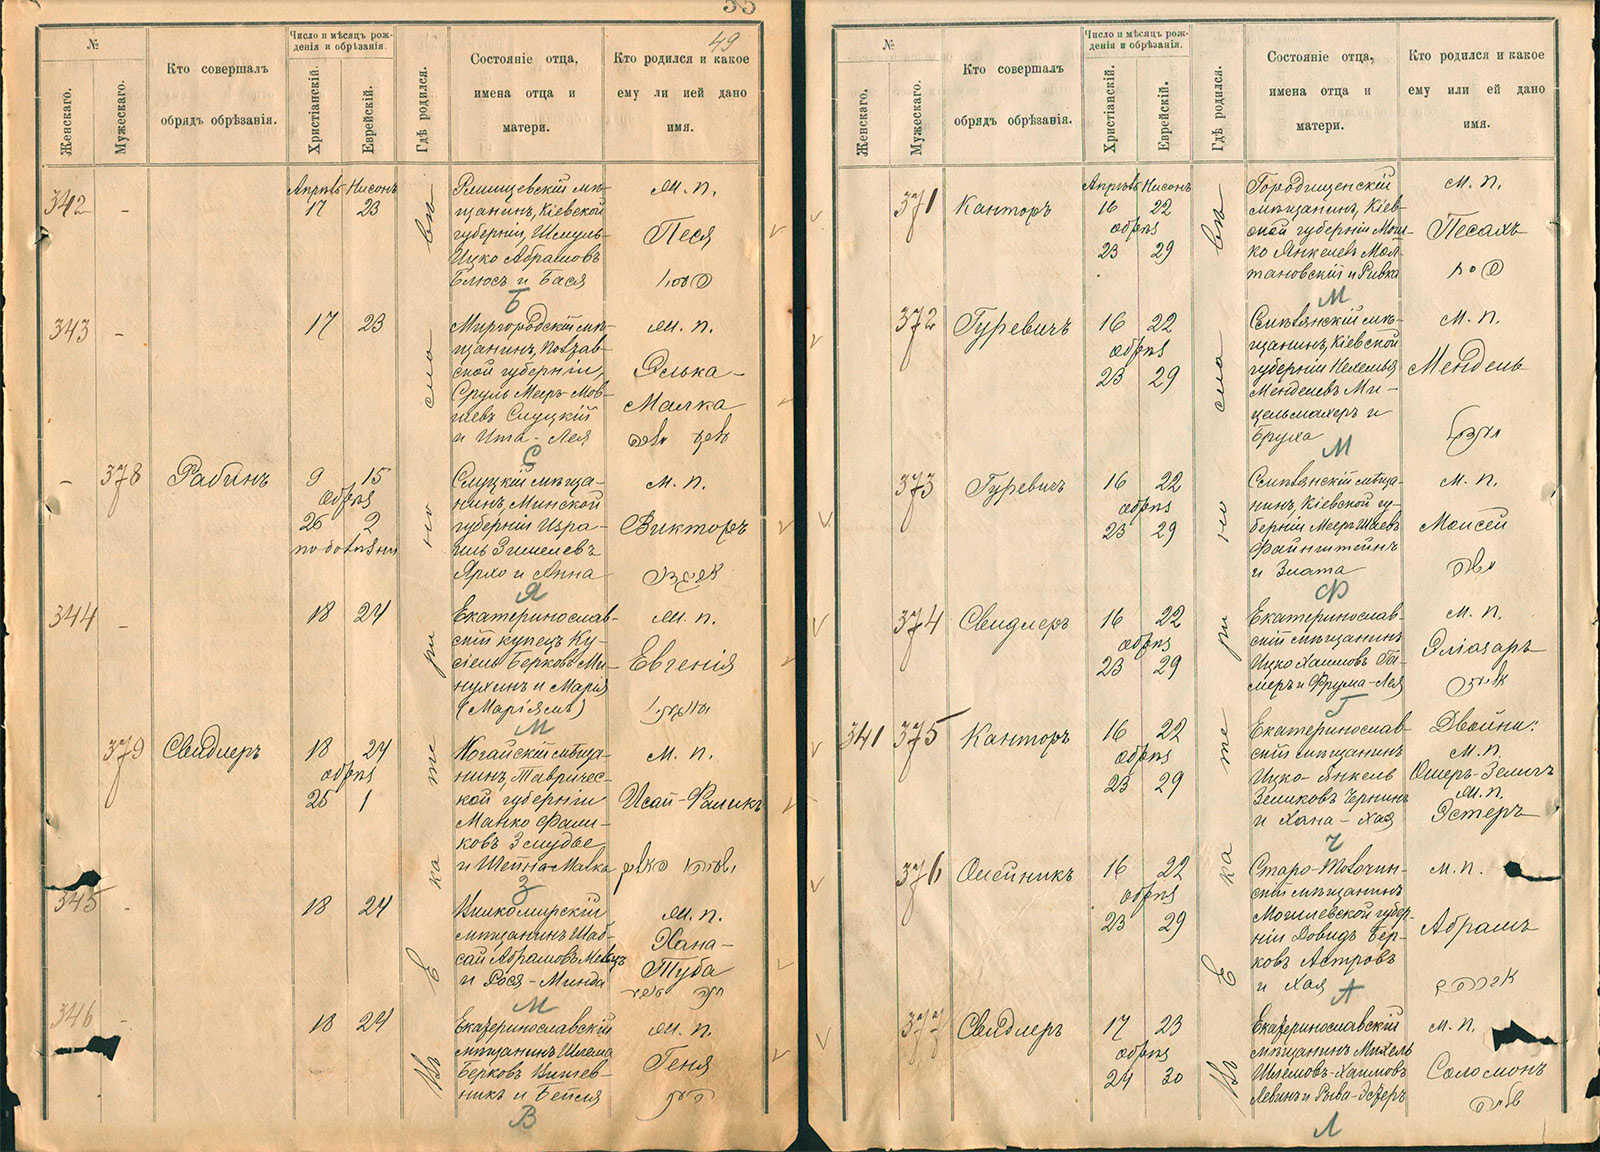 49
№
Женскаго.
Мужескаго.
Кто совершалъ
обрядъ обрѣзанія.
Число и мѣсяцъ рож-
денія и обрѣзанія.
Христіанскій.
Еврейскій.
Гдѣ родился.
Состояніе отца,
имена отца и
матери.
Кто родился и какое
ему ли ией дано
имя.
342 -
Апрѣль Нисонъ
17 23
щанинъ, Кіевской
губерніи, Шмуль-
Ицко Абрамовъ
Блюсъ и Бася
м. п.
Песя
Б
343 -
17 23
Миргородскій мѣ-
щанинъ, Полтав-
ской губерніи,
Сруль Мееръ Мов-
шевъ Слуцкій
и Ита-Лея
м. п.
Элька-
Малка
С
- 378
Рабинъ
9 15
обрѣз
26 2
по болѣзни
Слуцкій мѣща-
нинъ, Минской
губерніи Изра-
иль
и Анна
м. п.
Викторъ
Я
344 -
18 24
Екатеринослав-
скій купецъ Ку-
сіель Берковъ Ми-
нухинъ и Марія
(Маріямъ)
м. п.
Евгенія
М
379
Свидлеръ
18 24
обрѣз
25 1
Ногайскій мѣща-
нинъ, Тавричес-
кой губерніи
Манко Фали-
ковъ
и Шейна-Малка
м. п.
Исай-Фаликъ
З
345 -
18 24
Вилкомирскій
мѣщанинъ Шаб-
сай Абрамовъ
и Рося-Минда
м. п.
Хана-
Туба
М
346 -
18 24
Екатеринославскій
мѣщанинъ Шлема
Берковъ Вишев-
никъ и Бейля
м. п.
Геня
В
въ Екатеринославѣ
№
Женскаго.
Мужескаго.
Кто совершалъ
обрядъ обрѣзанія.
Число и мѣсяцъ рож-
денія и обрѣзанія.
Христіанскій.
Еврейскій.
Гдѣ родился.
Состояніе отца,
имена отца и
матери.
Кто родился и какое
ему или ей дано
имя.
371
Канторъ
Апрѣль Нисонъ
16 22
обрѣз
23 29
Городищенскій
мѣщанинъ, Кіев-
ской губерніи Мош-
ко Янкелевъ Мол-
тановскій и Ривка
м. п.
Песахъ
М
372
Гуревичъ
16 22
обрѣз
23 29
Смѣлянскій мѣ-
щанинъ, Кіевской
губерніи Нехемья
Менделевъ Ми-
цельмахеръ и
Бруха
м. п.
Мендель
М
373
Гуревичъ
16 22
обрѣз
23 29
Смѣлянскій мѣща-
нинъ, Кіевской гу-
берніи Мееръ Шаевъ
Файнштейнъ
и Злата
м. п.
Моисей
Ф
374
Свидлеръ
16 22
обрѣз
23 29
Екатеринослав-
скій мѣщанинъ
Ицко Хаимовъ Га-
меръ и Фрума-Лея
м. п.
Эліазаръ
Г
341 375
Канторъ
16 22
обрѣз
23 29
Екатеринослав-
скій мѣщанинъ
Ицко-Янкель
Зеликовъ Чернинъ
и Хана-Хая
Двойни:
м. п.
Ошеръ-Зеликъ
м. п.
Эстеръ
Ч
376
Олейникъ
16 22
обрѣз
23 29
мѣщанинъ
Могилевской губер-
ніи Довидъ Бер-
ковъ Астровъ
и Хая
м. п.
Абрамъ
А
377
Свидлеръ
17 23
обрѣз
24 30
Екатеринославскій
мѣщанинъ Михель
Шлемовъ-Хаимовъ
Левинъ и Рыва-Эстеръ
м. п.
Соломонъ
Л
въ Екатеринославѣ